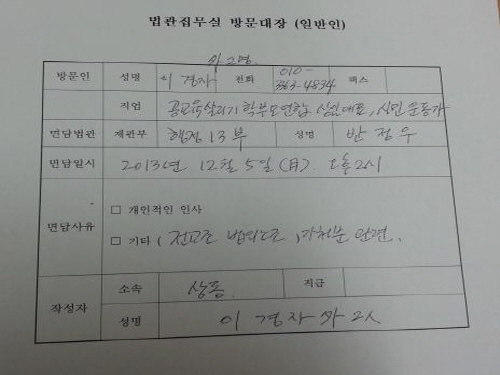 법관집무실 방문대장 (일반인)
외 2명
방문인 성명 이경자 전화 010- 363-4834 팩스
직업 공교육살리기 학부모연합 상임대표, 시민 운동가
면담법관 재판부 행정 13부 성명 반정우
면담일시 2013년 12월 5일 (月). 오후 2시
면담사유
□ 개인적인 인사
□ 기타 ( 전교조 법외노조 ) 가처분 안련.
작성자 소속 상동. 직급
성명 이경자 외 2人